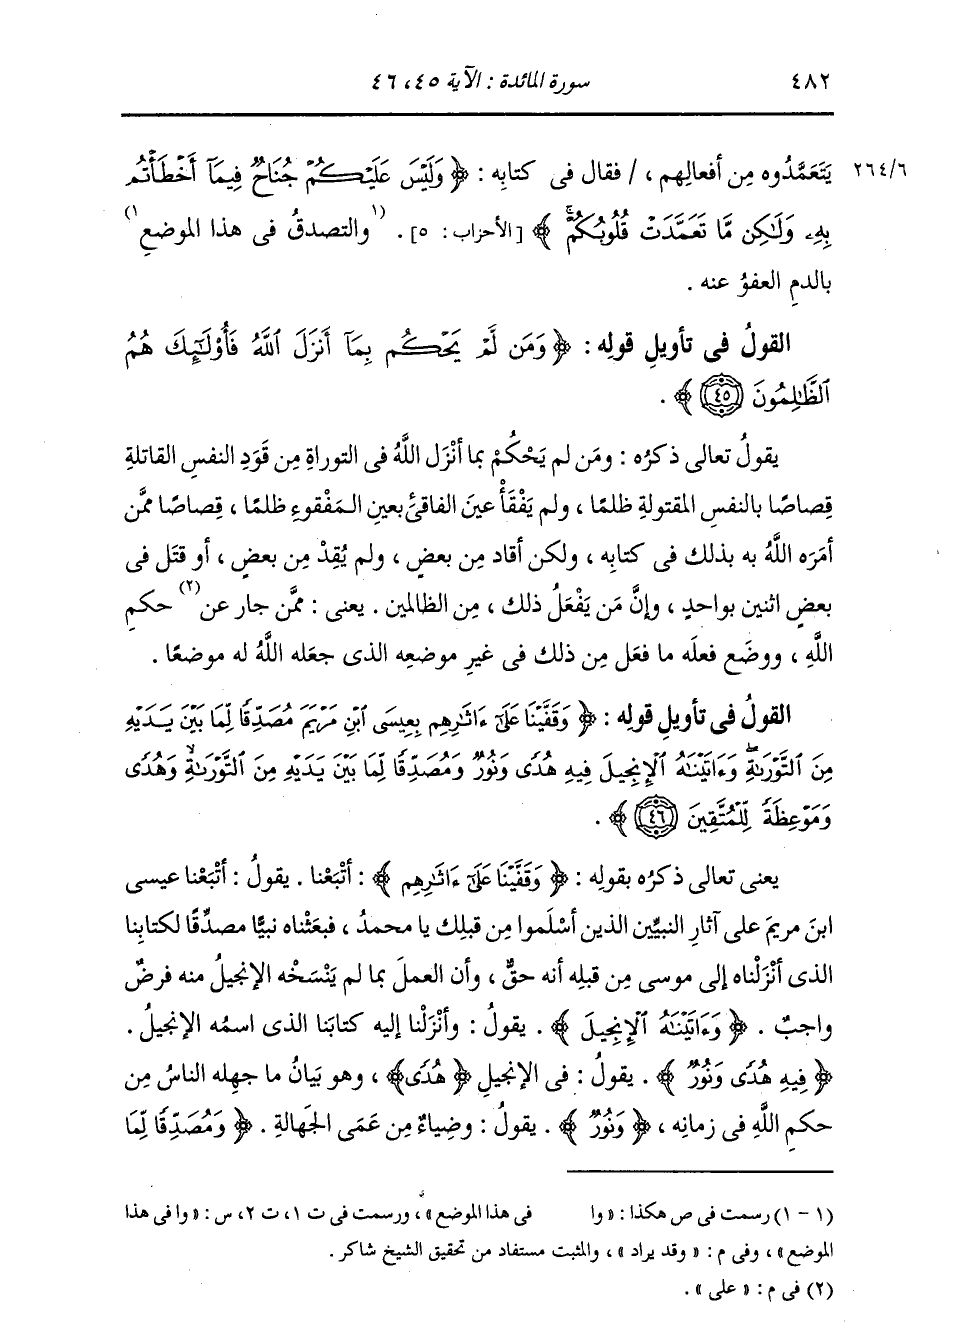 ٤٨٢ سورة المائدة : الآية ٤٥، ٤٦
٢٦٤/٦ يَتَعَمَّدُوه مِن أفعالِهم ، / فقال فى كتابِه : ﴿ وَلَيْسَ عَلَيْكُمْ جُنَاحٌ فِيمَآ أَخْطَأْتُم
بِهِۦ وَلَٰكِن مَّا تَعَمَّدَتْ قُلُوبُكُمْ ۚ ﴾ [الأحزاب : ٥] . (١) والتصدقُ فى هذا الموضعِ (١)
بالدمِ العفوُ عنه .
القولُ فى تأويلِ قولِه : ﴿ وَمَن لَّمْ يَحْكُم بِمَآ أَنزَلَ ٱللَّهُ فَأُو۟لَٰٓئِكَ هُمُ
ٱلظَّٰلِمُونَ ٤٥ ﴾ .
يقولُ تعالى ذكرُه : ومَن لم يَحْكُمْ بما أنْزَل اللَّهُ فى التوراةِ مِن قَوَدِ النفسِ القاتلةِ
قِصاصًا بالنفسِ المقتولةِ ظلمًا ، ولم يَفْقَأْ عينَ الفاقئِ بعينِ المَفْقوءِ ظلمًا ، قِصاصًا ممَّن
أمَرَه اللَّهُ به بذلك فى كتابِه ، ولكن أقاد مِن بعضٍ ، ولم يُقِدْ مِن بعضٍ ، أو قتَل فى
بعضٍ اثنين بواحدٍ ، وإنَّ مَن يَفْعَلُ ذلك ، مِن الظالمين . يعنى : ممَّن جار عن (٢) حكمِ
اللَّهِ ، ووضَع فعلَه ما فعَل مِن ذلك فى غيرِ موضعِه الذى جعَله اللَّهُ له موضعًا .
القولُ فى تأويلِ قولِه : ﴿ وَقَفَّيْنَا عَلَىٰٓ ءَاثَٰرِهِم بِعِيسَى ٱبْنِ مَرْيَمَ مُصَدِّقًا لِّمَا بَيْنَ يَدَيْهِ
مِنَ ٱلتَّوْرَىٰةِ ۖ وَءَاتَيْنَٰهُ ٱلْإِنجِيلَ فِيهِ هُدًى وَنُورٌ وَمُصَدِّقًا لِّمَا بَيْنَ يَدَيْهِ مِنَ ٱلتَّوْرَىٰةِ وَهُدًى
وَمَوْعِظَةً لِّلْمُتَّقِينَ ٤٦ ﴾ .
يعنى تعالى ذكرُه بقولِه : ﴿ وَقَفَّيْنَا عَلَىٰٓ ءَاثَٰرِهِم ﴾ : أتْبَعْنا . يقولُ : أتْبَعْنا عيسى
ابنَ مريمَ على آثارِ النبيِّين الذين أسْلَموا مِن قبلِك يا محمدُ ، فبعَثْناه نبيًّا مصدِّقًا لكتابِنا
الذى أنْزَلْناه إلى موسى مِن قبلِه أنه حقٌّ ، وأن العملَ بما لم يَنْسَخْه الإنجيلُ منه فرضٌ
واجبٌ . ﴿ وَءَاتَيْنَٰهُ ٱلْإِنجِيلَ ﴾ . يقولُ : وأنْزَلْنا إليه كتابَنا الذى اسمُه الإنجيلُ .
﴿ فِيهِ هُدًى وَنُورٌ ﴾ . يقولُ : فى الإنجيلِ ﴿ هُدًى ﴾ ، وهو بَيانُ ما جهِله الناسُ مِن
حكمِ اللَّهِ فى زمانِه ، ﴿ وَنُورٌ ﴾ . يقولُ : وضِياءٌ مِن عَمَى الجَهالةِ . ﴿ وَمُصَدِّقًا لِّمَا
(١ - ١) رسمت فى ص هكذا : « وا فى هذا الموضع » ، ورسمت فى ت ١، ت ٢، س : « وا فى هذا
الموضع » ، وفى م : « وقد يراد » ، والمثبت مستفاد من تحقيق الشيخ شاكر .
(٢) فى م : « على » .